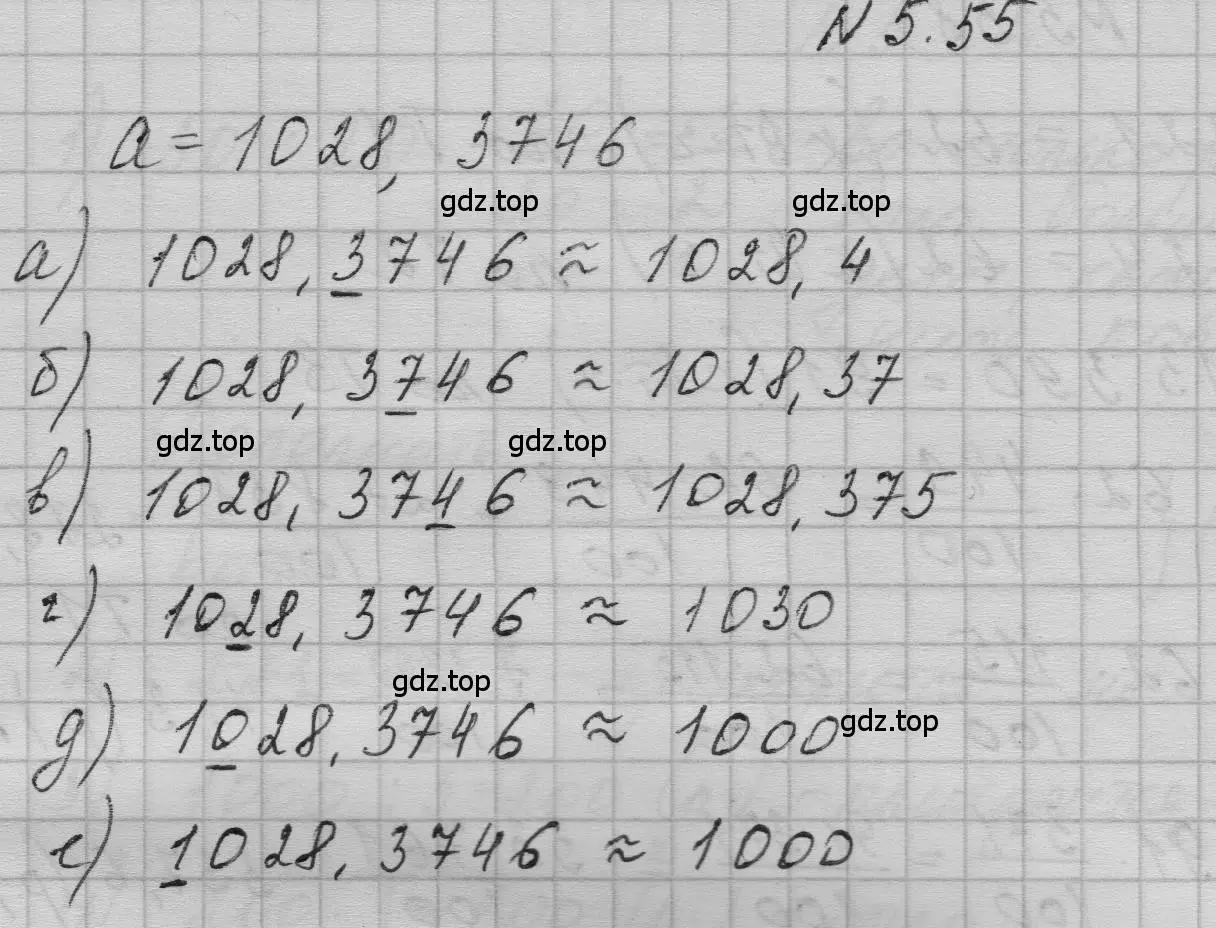 N 5.55
a = 1028, 3746
gdz.top gdz.top
а) 1028, 3746 ≈ 1028, 4
б) 1028, 3746 ≈ 1028, 37
gdz.top gdz.top
в) 1028, 3746 ≈ 1028, 375
г) 1028, 3746 ≈ 1030
gdz.top
д) 1028, 3746 ≈ 1000 gdz.top
е) 1028, 3746 ≈ 1000